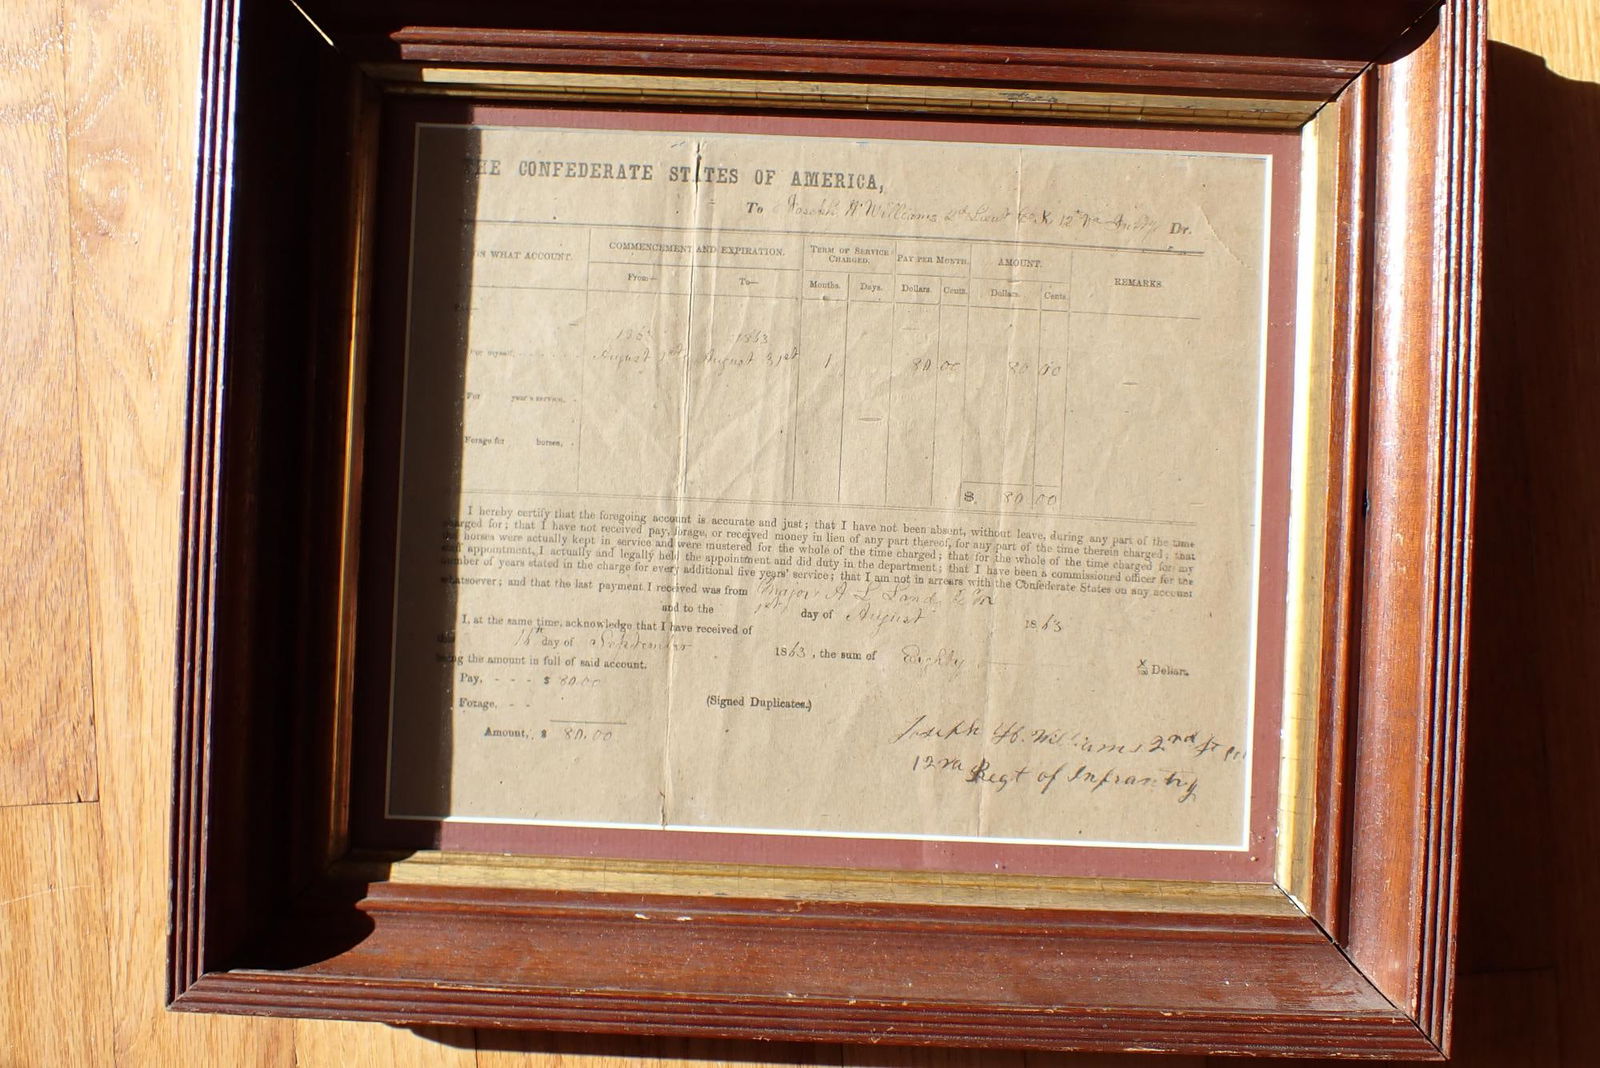 THE CONFEDERATE STATES OF AMERICA,
To Joseph H Williams 2d Lieut Co. K 12th Va Infty Dr.
ON WHAT ACCOUNT. COMMENCEMENT AND EXPIRATION. TERM OF SERVICE CHARGED. PAY PER MONTH. AMOUNT. REMARKS.
From— To— Months. Days. Dollars. Cents. Dollars. Cents.
1863 1863
For myself, August 1st August 31st 1 80 00 80 00
For year's service,
Forage for horses,
$ 80 00
I hereby certify that the foregoing account is accurate and just; that I have not been absent, without leave, during any part of the time
charged for; that I have not received pay, forage, or received money in lieu of any part thereof, for any part of the time therein charged; that
horses were actually kept in service and were mustered for the whole of the time charged; that for the whole of the time charged for my
staff appointment, I actually and legally held the appointment and did duty in the department; that I have been a commissioned officer for the
number of years stated in the charge for every additional five years' service; that I am not in arrears with the Confederate States on any account
whatsoever; and that the last payment I received was from Major A L Land
and to the 1st day of August 1863
I, at the same time, acknowledge that I have received of
this 16th day of September 1863, the sum of Eighty Dollars,
being the amount in full of said account.
Pay, - - - $ 80.00
Forage, - -
(Signed Duplicates.)
Amount, $ 80.00
Joseph H. Williams 2nd Lt
12 va Regt of Infrantry